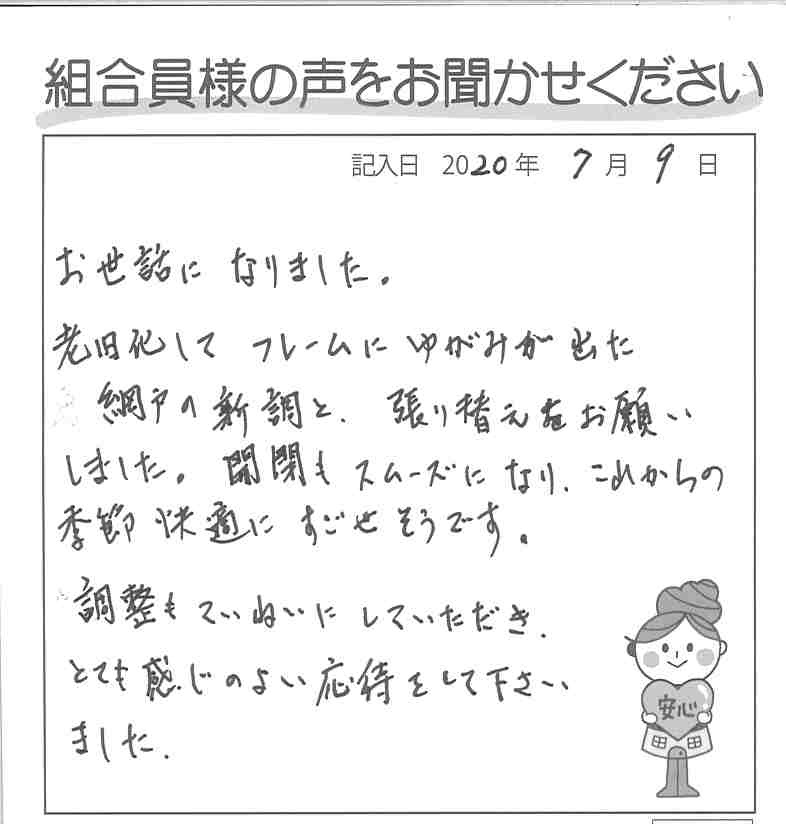 組合員様の声をお聞かせください
記入日 2020年 7月 9日
お世話に なりました。
老旧化して フレームに ゆがみが 出た
網戸の 新調と、張り替えをお願い
しました。開閉も スムーズに なり、これからの
季節 快適に すごせそうです。
調整も ていねいに していただき、
とても 感じのよい 応待をして下さい
ました。
安心